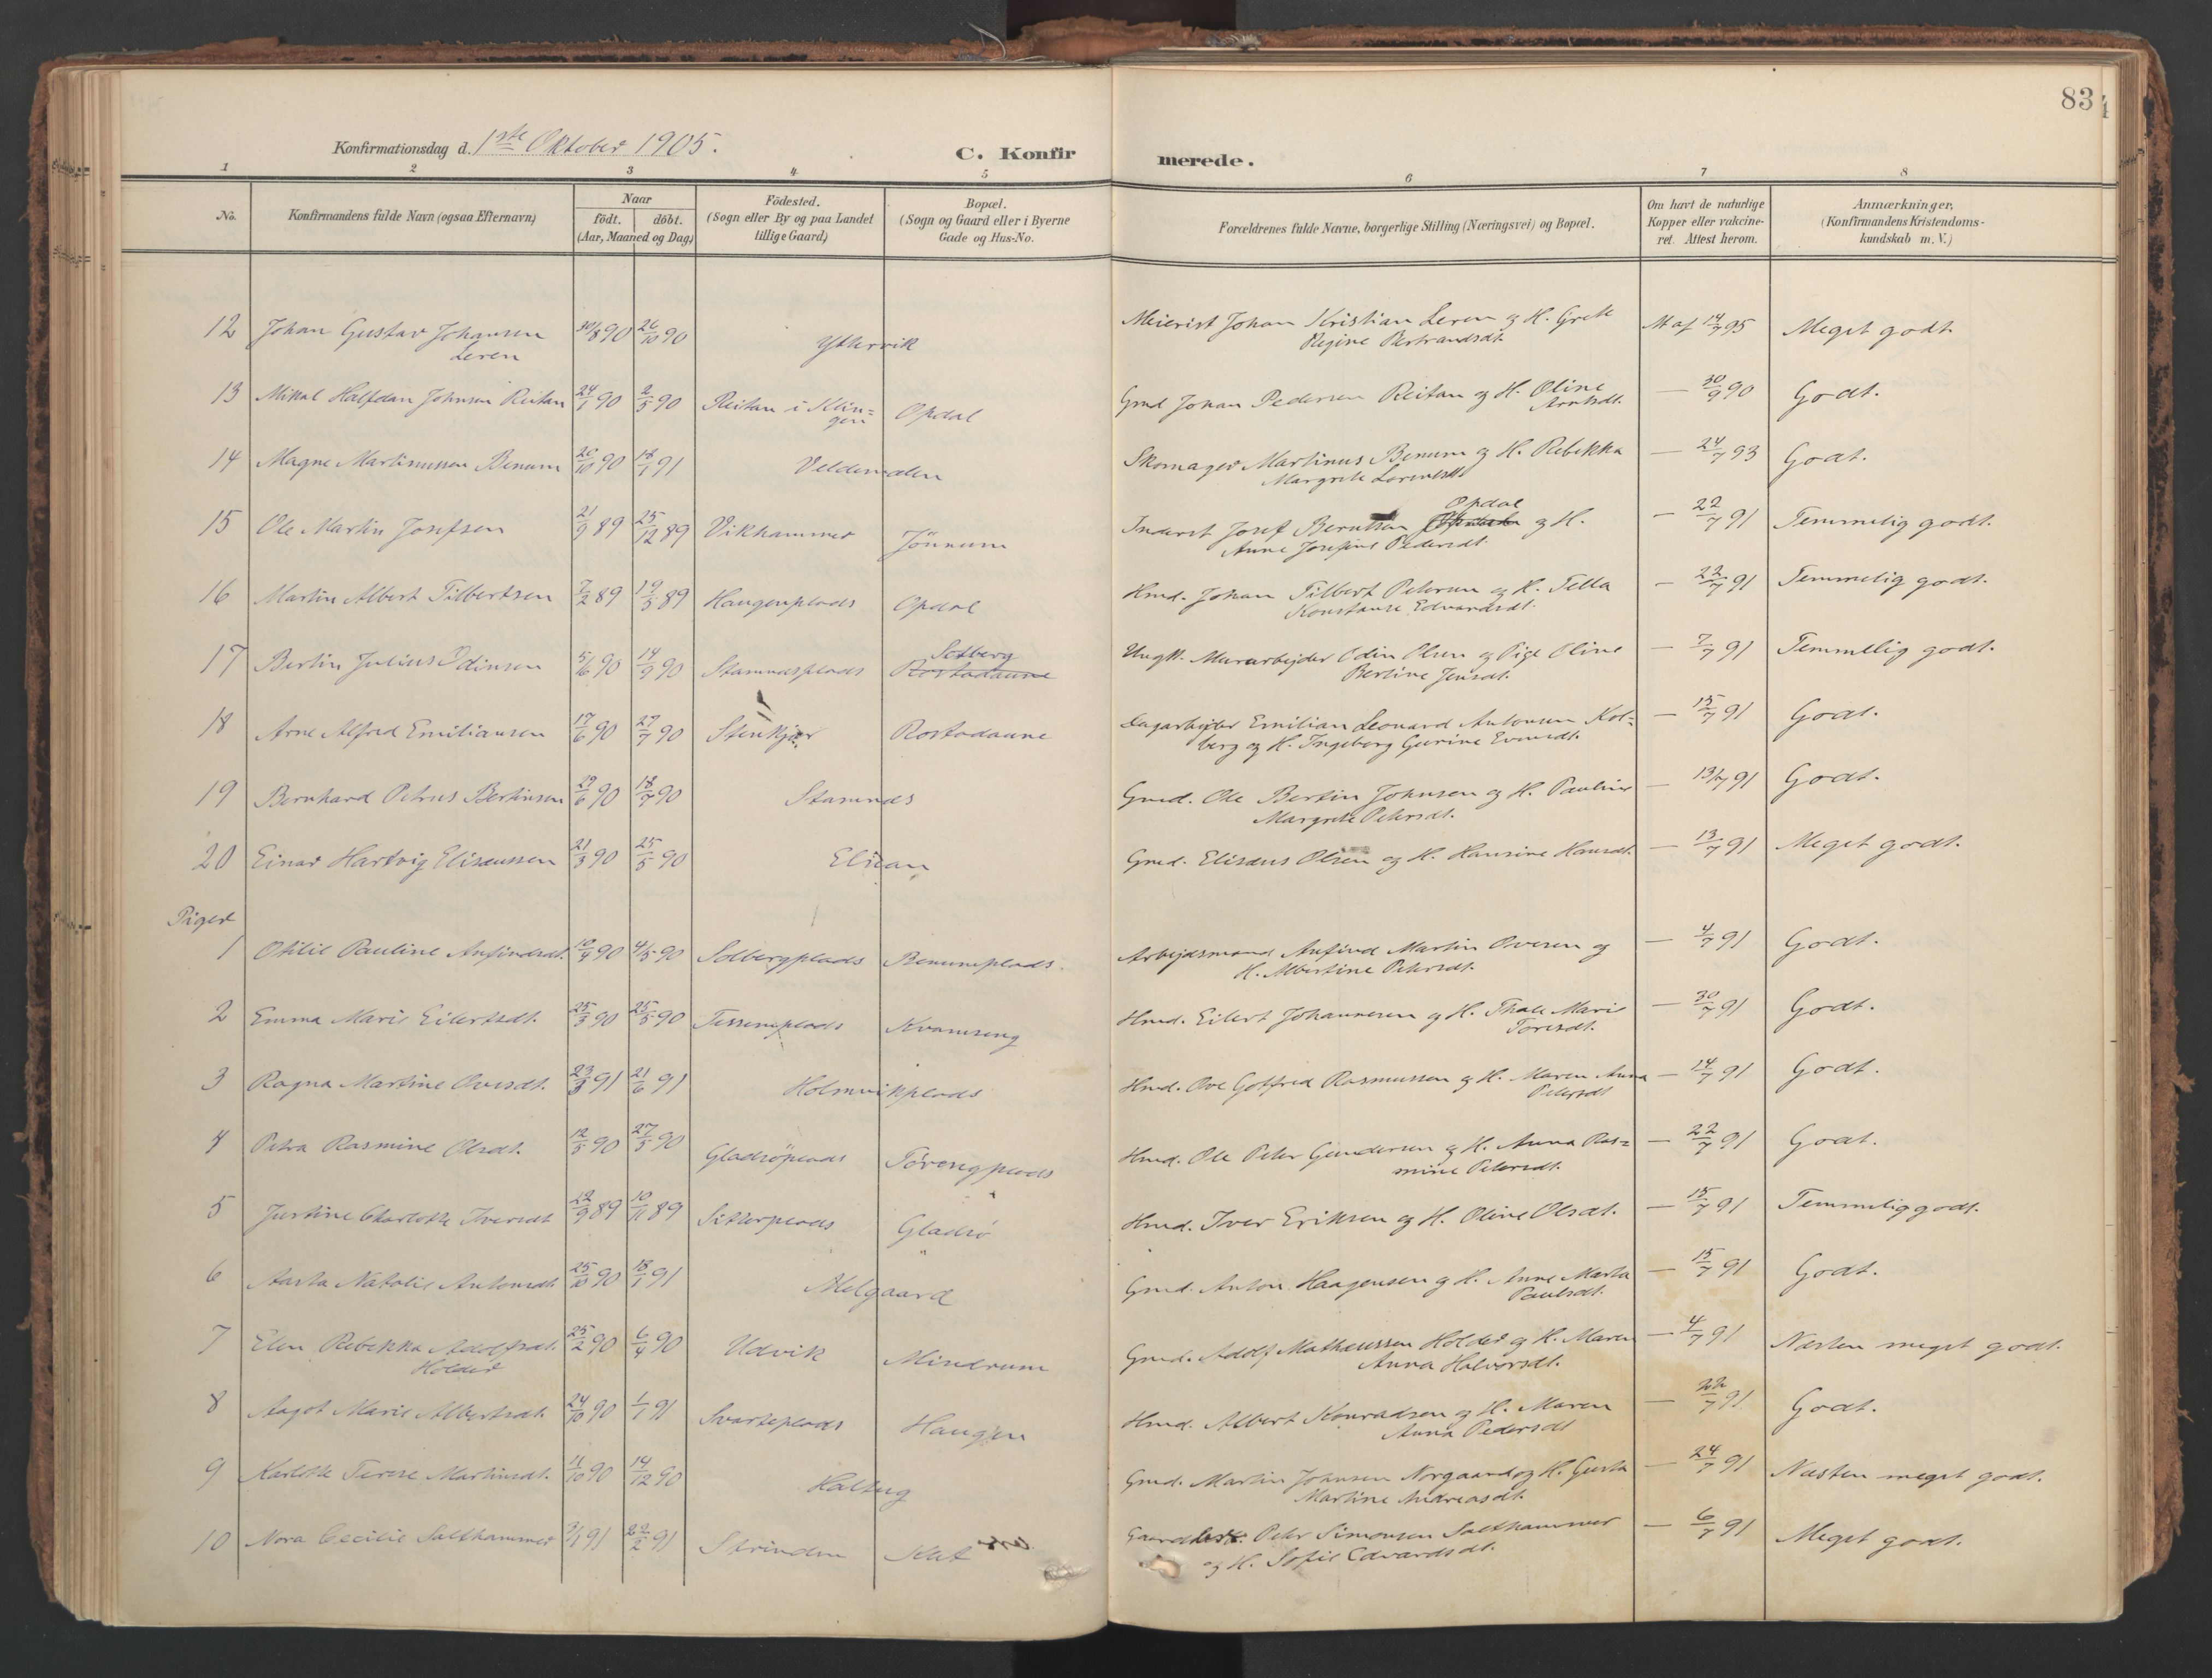 83
Konfirmationsdag d. 1ste Oktober 1905.
C. Konfirmerede.
1 2 3 4 5 6 7 8
No.
Konfirmandens fulde Navn (ogsaa Efternavn)
Naar
födt. döbt.
(Aar, Maaned og Dag)
Födested.
(Sogn eller By og paa Landet
tillige Gaard)
Bopæl.
(Sogn og Gaard eller i Byerne
Gade og Hus-No.
Forældrenes fulde Navne, borgerlige Stilling (Næringsvei) og Bopæl.
Om havt de naturlige
Kopper eller vakcine-
ret. Attest herom.
Anmærkninger,
(Konfirmandens Kristendoms-
kundskab m. V.)
12 Johan Gustav Johansen 30/8 90 26/10 90 Yttervik Meierist Johan Kristian Leren og H. Grete At af 14/7 95 Meget godt
Leren Regine Bertrandsdt.
13 Mikal Halfdan Johnsen Reitan 24/1 90 2/5 90 Reitan i Klin= Opdal Gmd Johan Pedersen Reitan og H. Oline — 30/9 90 Godt.
gen Arntsdt.
14 Magne Martinussen Benum 20/10 90 18/1 91 Veldemelen Skomager Martinus Benum og H. Rebekka — 24/7 93 Godt.
Margrete Lorentsdt
15 Ole Martin Josefsen 21/9 89 25/12 89 Vikhammer Jönnum Inderst Josef Berntsen Opdal og H. — 22/7 91 Temmelig godt.
Anne Josefine Pedersdt.
16 Martin Albert Tilbertsen 7/2 89 19/5 89 Haugenplads Opdal Hmd. Johan Tilbert Petersen og H. Tella — 22/7 91 Temmelig godt.
Konstanse Edvardsdt.
17 Bertin Julius Odinsen 5/6 90 14/9 90 Stamnesplads Solberg Rostadaune Ungk. Murarbejder Odin Olsen og Pige Oline — 7/7 91 Temmelig godt.
Bertine Jensdt.
18 Arne Alfred Emiliansen 17/6 90 27/7 90 Stenkjær Rostadaune Dagarbejder Emilian Leonard Antonsen Kol= — 15/7 91 Godt.
berg og H. Ingeborg Gurine Evensdt.
19 Bernhard Petrus Bertinsen 29/6 90 18/7 90 Stamnes Gmd. Ole Bertin Johnsen og H. Pauline — 13/7 91 Godt.
Margrete Petersdt.
20 Einar Hartvig Elisæussen 21/3 90 25/5 90 Elnan Gmd. Elisæus Olsen og H. Hansine Hansdt. — 13/7 91 Meget godt.
Piger
1 Otilie Pauline Anfindsdt. 10/4 90 4/5 90 Solbergplads Benumplads. Arbejdsmand Anfind Martin Ovesen og — 4/7 91 Godt.
H. Albertine Petersdt.
2 Emma Marie Eilertsdt. 25/3 90 25/5 90 Tessemplads Kvamseng Hmd. Eilert Johannesen og H. Thale Marie — 30/7 91 Godt.
Toresdt.
3 Ragna Martine Ovesdt. 23/3 91 21/6 91 Holmvikplads Hmd. Ove Gotfred Rasmussen og H. Maren Anna — 14/7 91 Godt.
Petersdt
4 Petra Rasmine Olsdt. 12/5 90 27/5 90 Gladsöplads Töresengplads Hmd. Ole Peter Gundersen og H. Anna Ras= — 22/7 91 Godt.
mine Petersdt.
5 Justine Charlotte Iversdt 22/9 89 10/11 89 Sitterplads Gladsö Hmd. Iver Eriksen og H. Oline Olsdt. — 15/7 91 Temmelig godt.
6 Aasta Natalie Antonsdt. 25/10 90 18/1 91 Melgaard Gmd. Anton Haagensen og H. Anne Marta — 15/7 91 Godt.
Paulsdt.
7 Elen Rebekka Adolfsdt. 25/2 90 6/4 90 Udvik Mindrum Gmd. Adolf Matheussen Holder og H. Maren — 4/7 91 Næsten meget godt.
Holder Anna Halvorsdt.
8 Aagot Marie Albertsdt. 24/10 90 1/1 91 Svarteplads Haugen Hmd. Albert Konradsen og H. Maren — 22/7 91 Godt.
Anna Pedersdt
9 Karlotte Terese Martinsdt. 11/10 90 14/12 90 Haltug Gmd. Martin Johnsen Norgaard og H. Gusta — 24/7 91 Næsten meget godt.
Martine Andreasdt.
10 Nora Cecilie Salthammer 3/1 91 22/2 91 Strinden Gaardbest. Peter Simonsen Salthammer — 6/7 91 Meget godt.
og H. Sofie Edvardsdt.